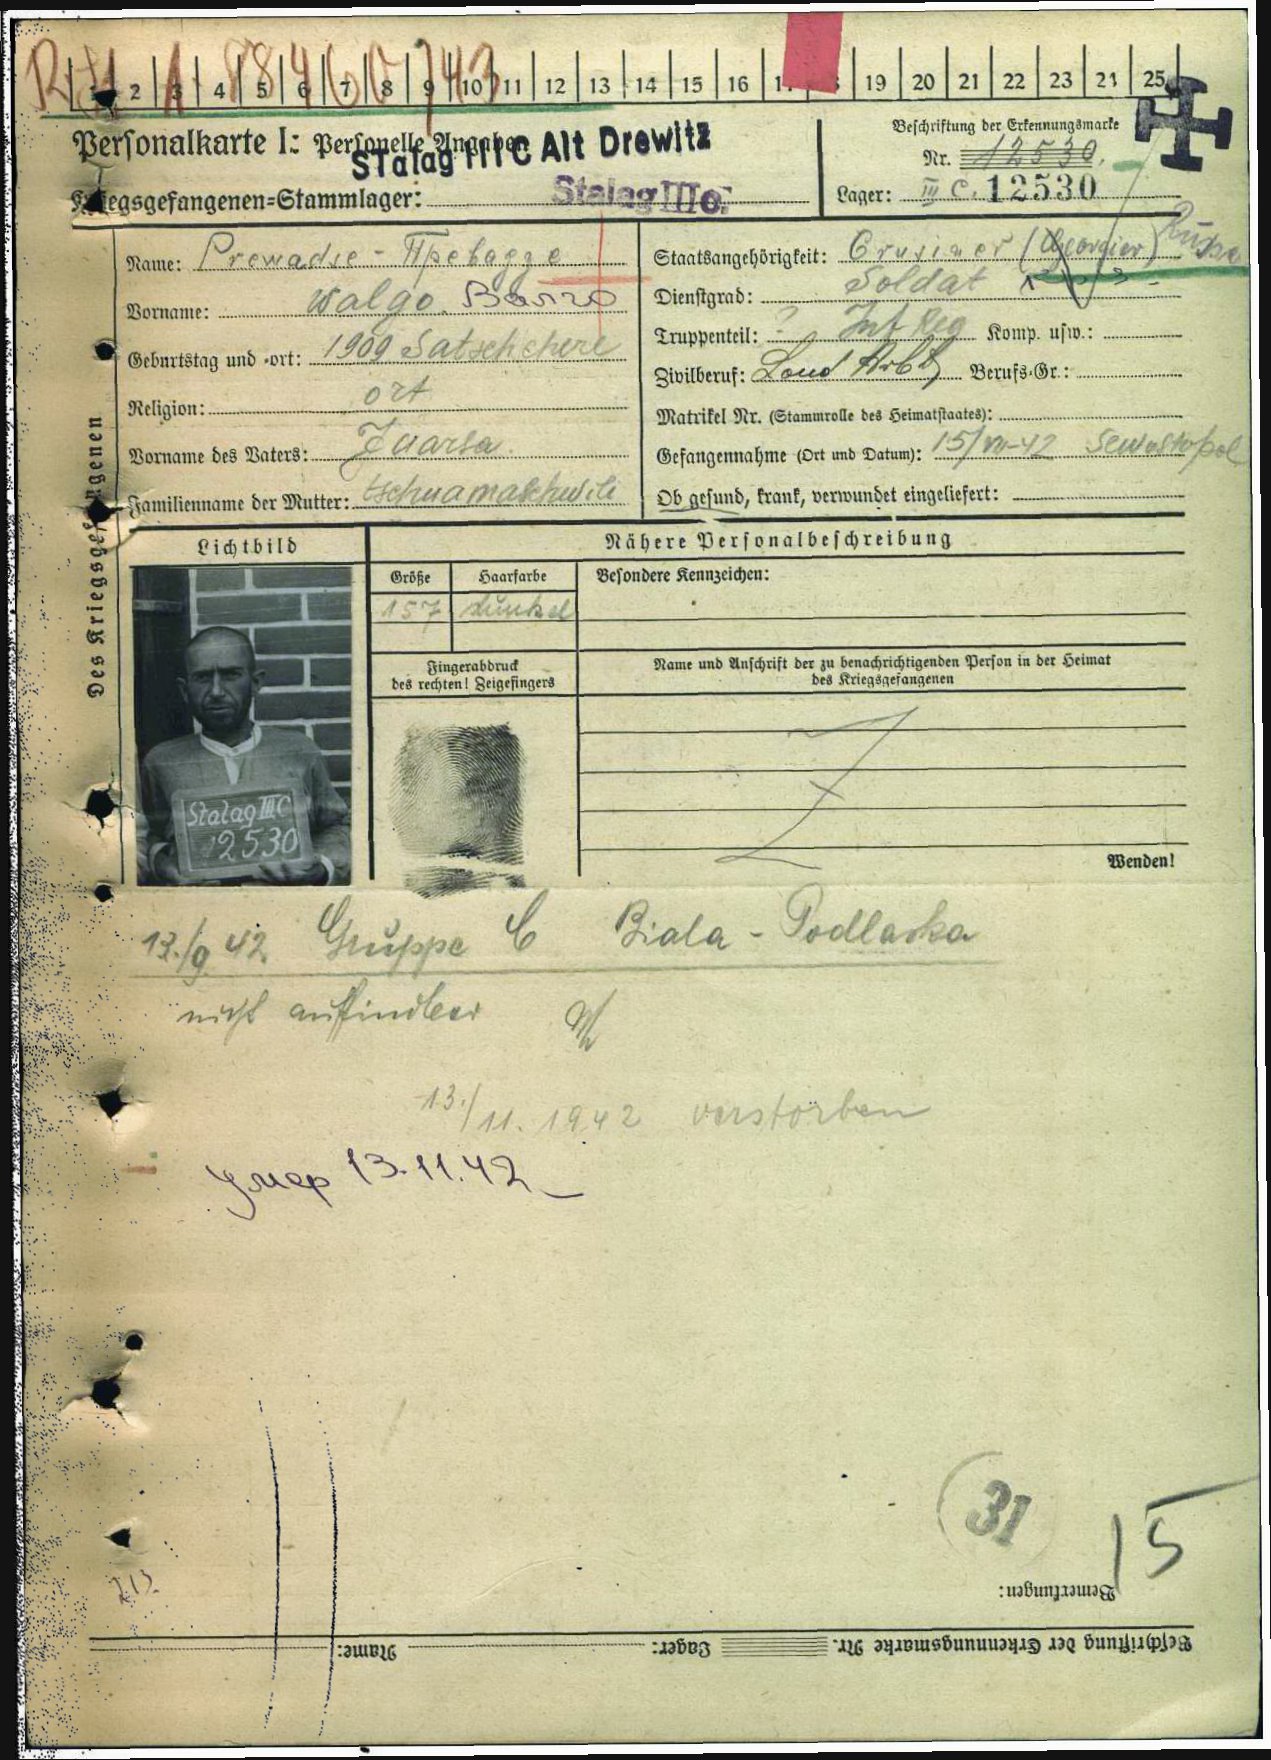 R 1 88460/43
1 2 3 4 5 6 7 8 9 10 11 12 13 14 15 16 19 20 21 22 23 24 25
Personalkarte I: Personelle Angaben
Stalag III C Alt Drewitz
Kriegsgefangenen-Stammlager: Stalag III C.
Beschriftung der Erkennungsmarke
Nr. 12530.
Lager: III C. 12530
Des Kriegsgefangenen
Name: Prewadse - Превадзе
Vorname: Walgo. Валго
Geburtstag und -ort: 1909 Satschchere
ort
Religion:
Vorname des Vaters:
Familienname der Mutter: tschuamaschwili
Staatsangehörigkeit: Grusiner (Georgier) Russe
Dienstgrad: Soldat
Truppenteil: ? Inf Reg Komp. usw.:
Zivilberuf: Land Arbt Berufs-Gr.:
Matrikel Nr. (Stammrolle des Heimatstaates):
Gefangennahme (Ort und Datum): 15/VII-42 Sewastopol
Ob gesund, krank, verwundet eingeliefert:
Lichtbild
Nähere Personalbeschreibung
Größe Haarfarbe Besondere Kennzeichen:
157 dunkel
Fingerabdruck
des rechten! Zeigefingers
Name und Anschrift der zu benachrichtigenden Person in der Heimat
des Kriegsgefangenen
Stalag III C
12530
Wenden!
13./9 42. Gruppe C Biala - Podlaska
nicht auffindbar
13./11. 1942 verstorben
умер 13.11.42
31
15
213
Bemerkungen:
Beschriftung der Erkennungsmarke Nr. Lager: Name: